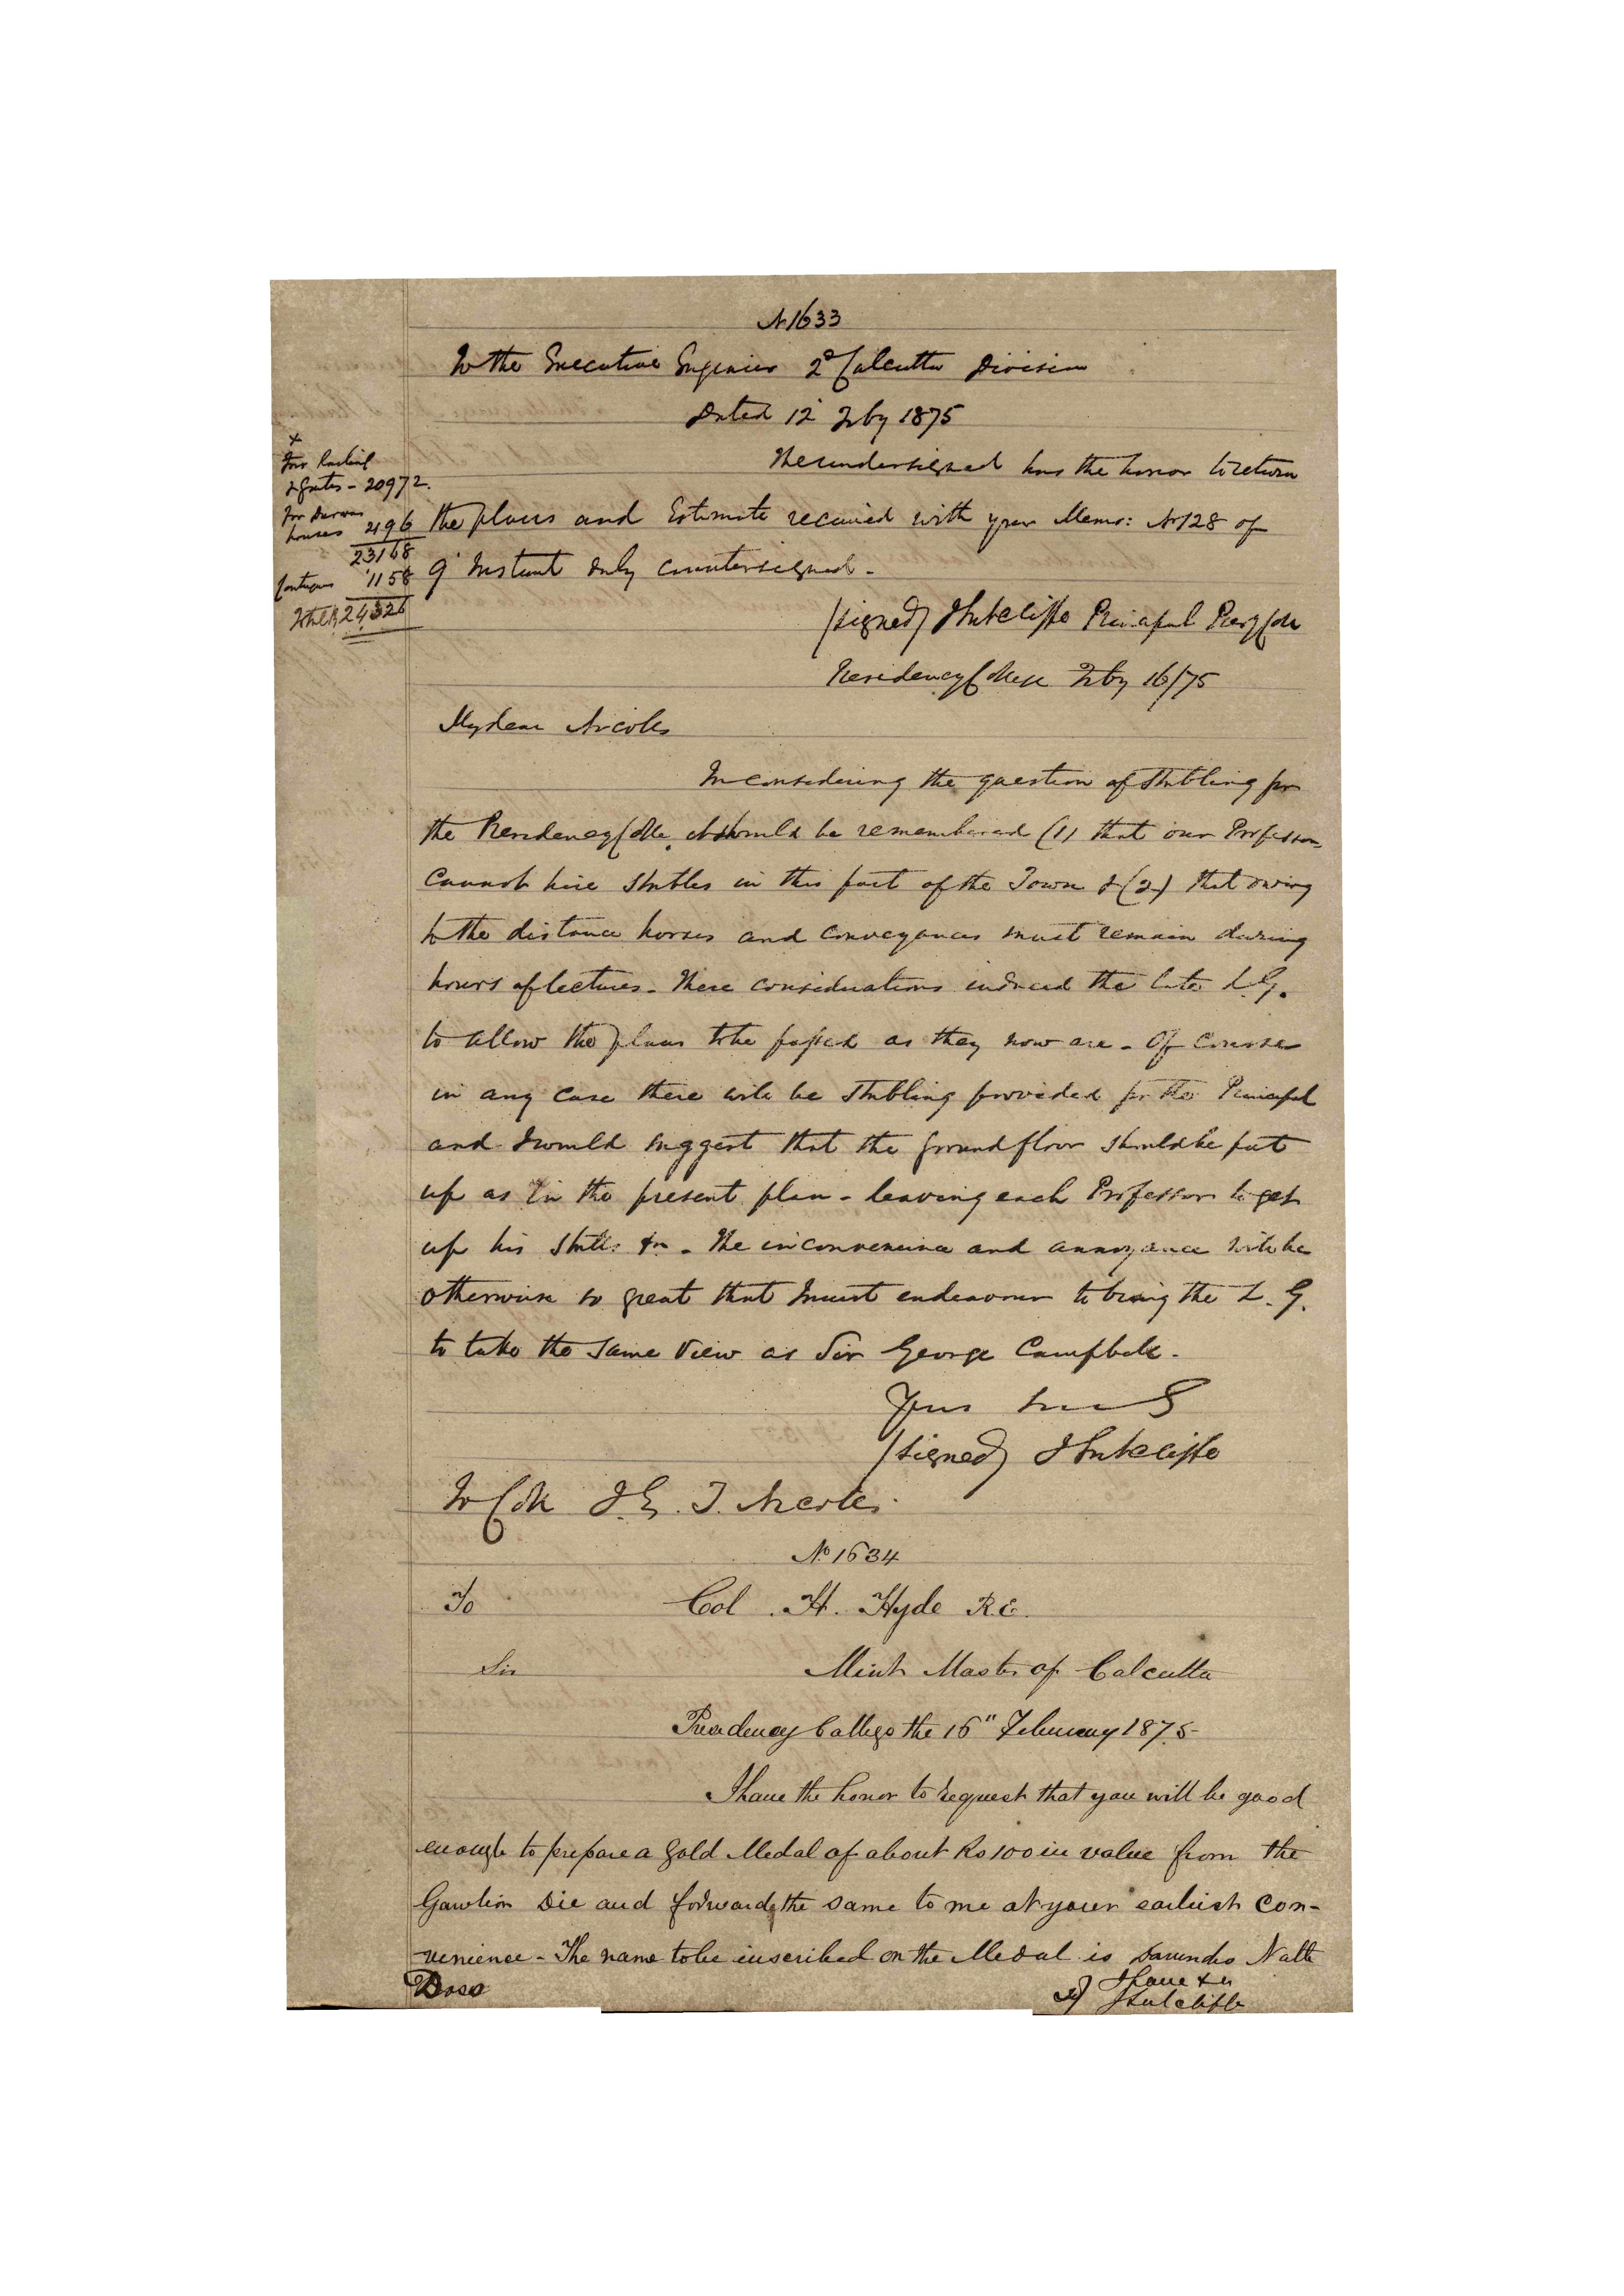 No 1633
To the Executive Engineer 2d Calcutta Division
Dated 12 Feby 1875
The undersigned has the honor to return
the plans and Estimate received with your Memo: No 128 of
9 Instant duly countersigned.
x
For Railing
& Gates - 20972.
For Durwan
houses 2196
23168
Contingens 1158
Total R 24,326
(signed) J Sutcliffe Principal Presy Coll
Presidency College Feby 16/75
My dear Nicolls
In considering the question of Stabling for
the Presidency Colle, it should be remembered (1) that our Professors
cannot hire Stables in this part of the Town & (2) that owing
to the distance horses and conveyances must remain during
hours of lectures. These considerations induced the late L.G.
to allow the plans to be passed as they now are. Of course
in any case there will be Stabling provided for the Principal
and I would suggest that the ground floor should be put
up as in the present plan - leaving each Professor to get
up his Stalls &c. The inconvenience and annoyance will be
otherwise so great that I must endeavour to bring the L. G.
to take the same view as Sir George Campbell.
Yours
(signed) J Sutcliffe
To Col J. E. T. Nicolls.
No 1634
To Col. H. Hyde R.E.
Sir Mint Master of Calcutta
Presidency College the 16" February 1875
I have the honor to request that you will be good
enough to prepare a Gold Medal of about Rs 100 in value from the
Gawtion Die and forward the same to me at your earliest con-
-venience - The name to be inscribed on the Medal is Nath
Bose
I have &c
Sd/ J Sutcliffe